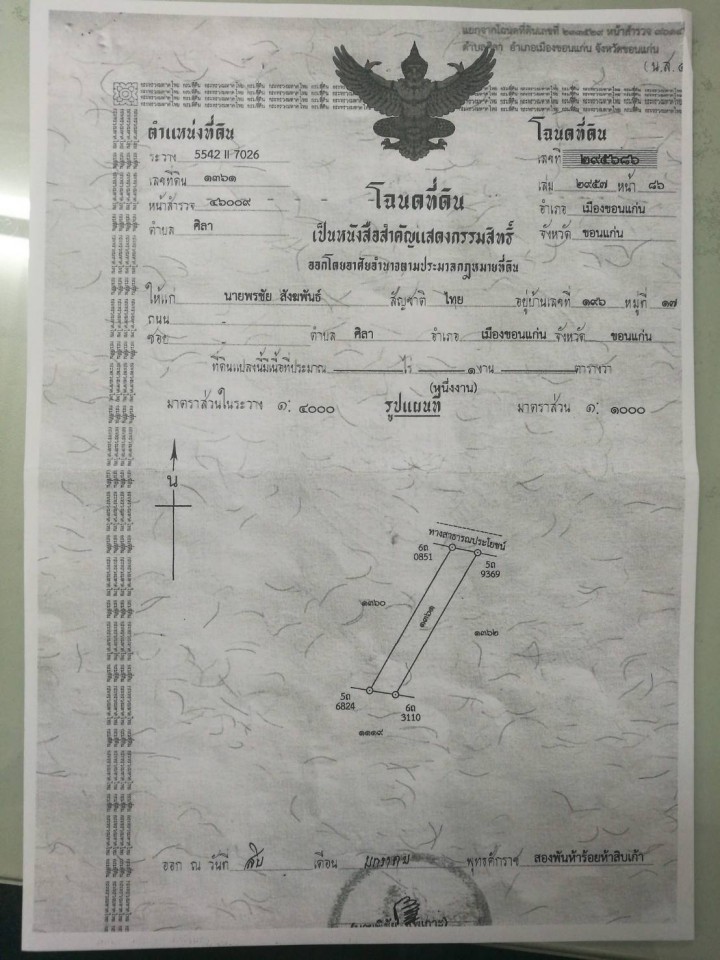 แยกจากโฉนดที่ดินเลขที่ ๒๓๓๕๒๙ หน้าสำรวจ
ตำบลศิลา อำเภอเมืองขอนแก่น จังหวัดขอนแก่น
(น.ส.๔
ตำแหน่งที่ดิน
ระวาง 5542 II 7026
เลขที่ดิน ๑๓๖๑
หน้าสำรวจ ๔๖๐๐๙
ตำบล ศิลา
โฉนดที่ดิน
เลขที่ ๒๙๕๖๘๖
เล่ม ๒๙๕๗ หน้า ๘๖
อำเภอ เมืองขอนแก่น
จังหวัด ขอนแก่น
โฉนดที่ดิน
เป็นหนังสือสำคัญแสดงกรรมสิทธิ์
ออกโดยอาศัยอำนาจตามประมวลกฎหมายที่ดิน
ให้แก่ นายพรชัย สังฆพันธ์ สัญชาติ ไทย อยู่บ้านเลขที่ ๑๙๖ หมู่ที่ ๑๗
ถนน -
ซอย - ตำบล ศิลา อำเภอ เมืองขอนแก่น จังหวัด ขอนแก่น
ที่ดินแปลงนี้มีเนื้อที่ประมาณ ไร่ ๑ งาน ตารางวา
(หนึ่งงาน)
มาตราส่วนในระวาง ๑: ๔๐๐๐ รูปแผนที่ มาตราส่วน ๑: ๑๐๐๐
น
ทางสาธารณประโยชน์
6ถ 0851
5ถ 9369
๑๓๖๐
๑๓๖๑
๑๓๖๒
5ถ 6824
6ถ 3110
๑๑๑๙
ออก ณ วันที่ สิบ เดือน มกราคม พุทธศักราช สองพันห้าร้อยห้าสิบเก้า